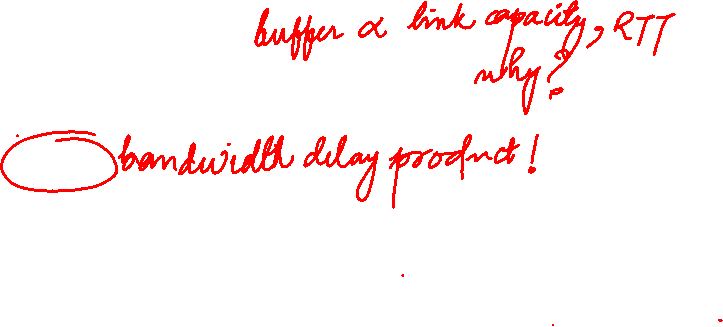 buffer ∝ link capacity, RTT
why?
bandwidth delay product!